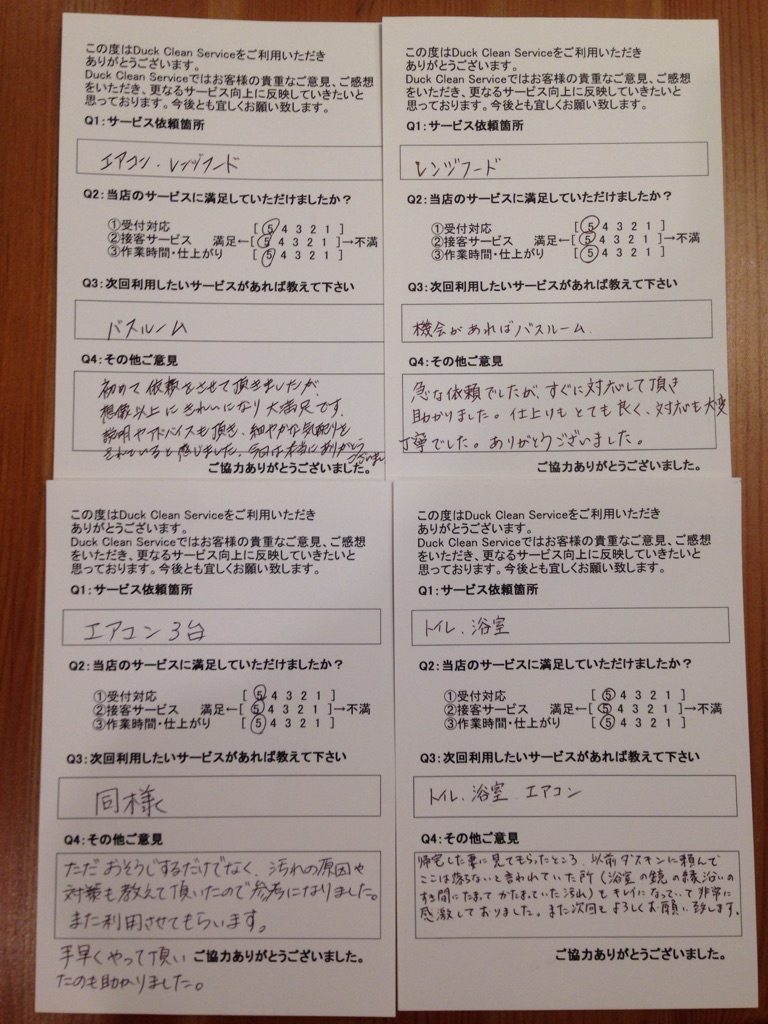 この度はDuck Clean Serviceをご利用いただき
ありがとうございます。
Duck Clean Serviceではお客様の貴重なご意見、ご感想
をいただき、更なるサービス向上に反映していきたいと
思っております。今後とも宜しくお願い致します。
Q1：サービス依頼箇所
エアコン・レンジフード
Q2：当店のサービスに満足していただけましたか？
①受付対応 [ 5 4 3 2 1 ]
②接客サービス 満足←[ 5 4 3 2 1 ]→不満
③作業時間・仕上がり [ 5 4 3 2 1 ]
Q3：次回利用したいサービスがあれば教えて下さい
バスルーム
Q4：その他ご意見
初めて依頼をさせて頂きましたが、
想像以上にきれいになり大満足です。
説明やアドバイスも頂き、細やかな気配りを
されていると感じました。今日は本当にありがとう
ございました
ご協力ありがとうございました。
この度はDuck Clean Serviceをご利用いただき
ありがとうございます。
Duck Clean Serviceではお客様の貴重なご意見、ご感想
をいただき、更なるサービス向上に反映していきたいと
思っております。今後とも宜しくお願い致します。
Q1：サービス依頼箇所
レンジフード
Q2：当店のサービスに満足していただけましたか？
①受付対応 [ 5 4 3 2 1 ]
②接客サービス 満足←[ 5 4 3 2 1 ]→不満
③作業時間・仕上がり [ 5 4 3 2 1 ]
Q3：次回利用したいサービスがあれば教えて下さい
機会があればバスルーム
Q4：その他ご意見
急な依頼でしたが、すぐに対応して頂き
助かりました。仕上りもとても良く、対応も大変
丁寧でした。ありがとうございました。
ご協力ありがとうございました。
この度はDuck Clean Serviceをご利用いただき
ありがとうございます。
Duck Clean Serviceではお客様の貴重なご意見、ご感想
をいただき、更なるサービス向上に反映していきたいと
思っております。今後とも宜しくお願い致します。
Q1：サービス依頼箇所
エアコン3台
Q2：当店のサービスに満足していただけましたか？
①受付対応 [ 5 4 3 2 1 ]
②接客サービス 満足←[ 5 4 3 2 1 ]→不満
③作業時間・仕上がり [ 5 4 3 2 1 ]
Q3：次回利用したいサービスがあれば教えて下さい
同様く
Q4：その他ご意見
ただおそうじするだけでなく、汚れの原因や
対策も教えて頂いたので参考になりました。
また利用させてもらいます。
手早くやって頂い
たのも助かりました。
ご協力ありがとうございました。
この度はDuck Clean Serviceをご利用いただき
ありがとうございます。
Duck Clean Serviceではお客様の貴重なご意見、ご感想
をいただき、更なるサービス向上に反映していきたいと
思っております。今後とも宜しくお願い致します。
Q1：サービス依頼箇所
トイレ、浴室
Q2：当店のサービスに満足していただけましたか？
①受付対応 [ 5 4 3 2 1 ]
②接客サービス 満足←[ 5 4 3 2 1 ]→不満
③作業時間・仕上がり [ 5 4 3 2 1 ]
Q3：次回利用したいサービスがあれば教えて下さい
トイレ、浴室、エアコン
Q4：その他ご意見
帰宅した妻に見てもらったところ、以前ダスキンに頼んで
ここは落ちないと言われていた所（浴室の鏡の縁沿いの
すき間にたまってかたまっていた汚れ）もキレイになっていて非常に
感激しておりました。また次回もよろしくお願い致します。
ご協力ありがとうございました。